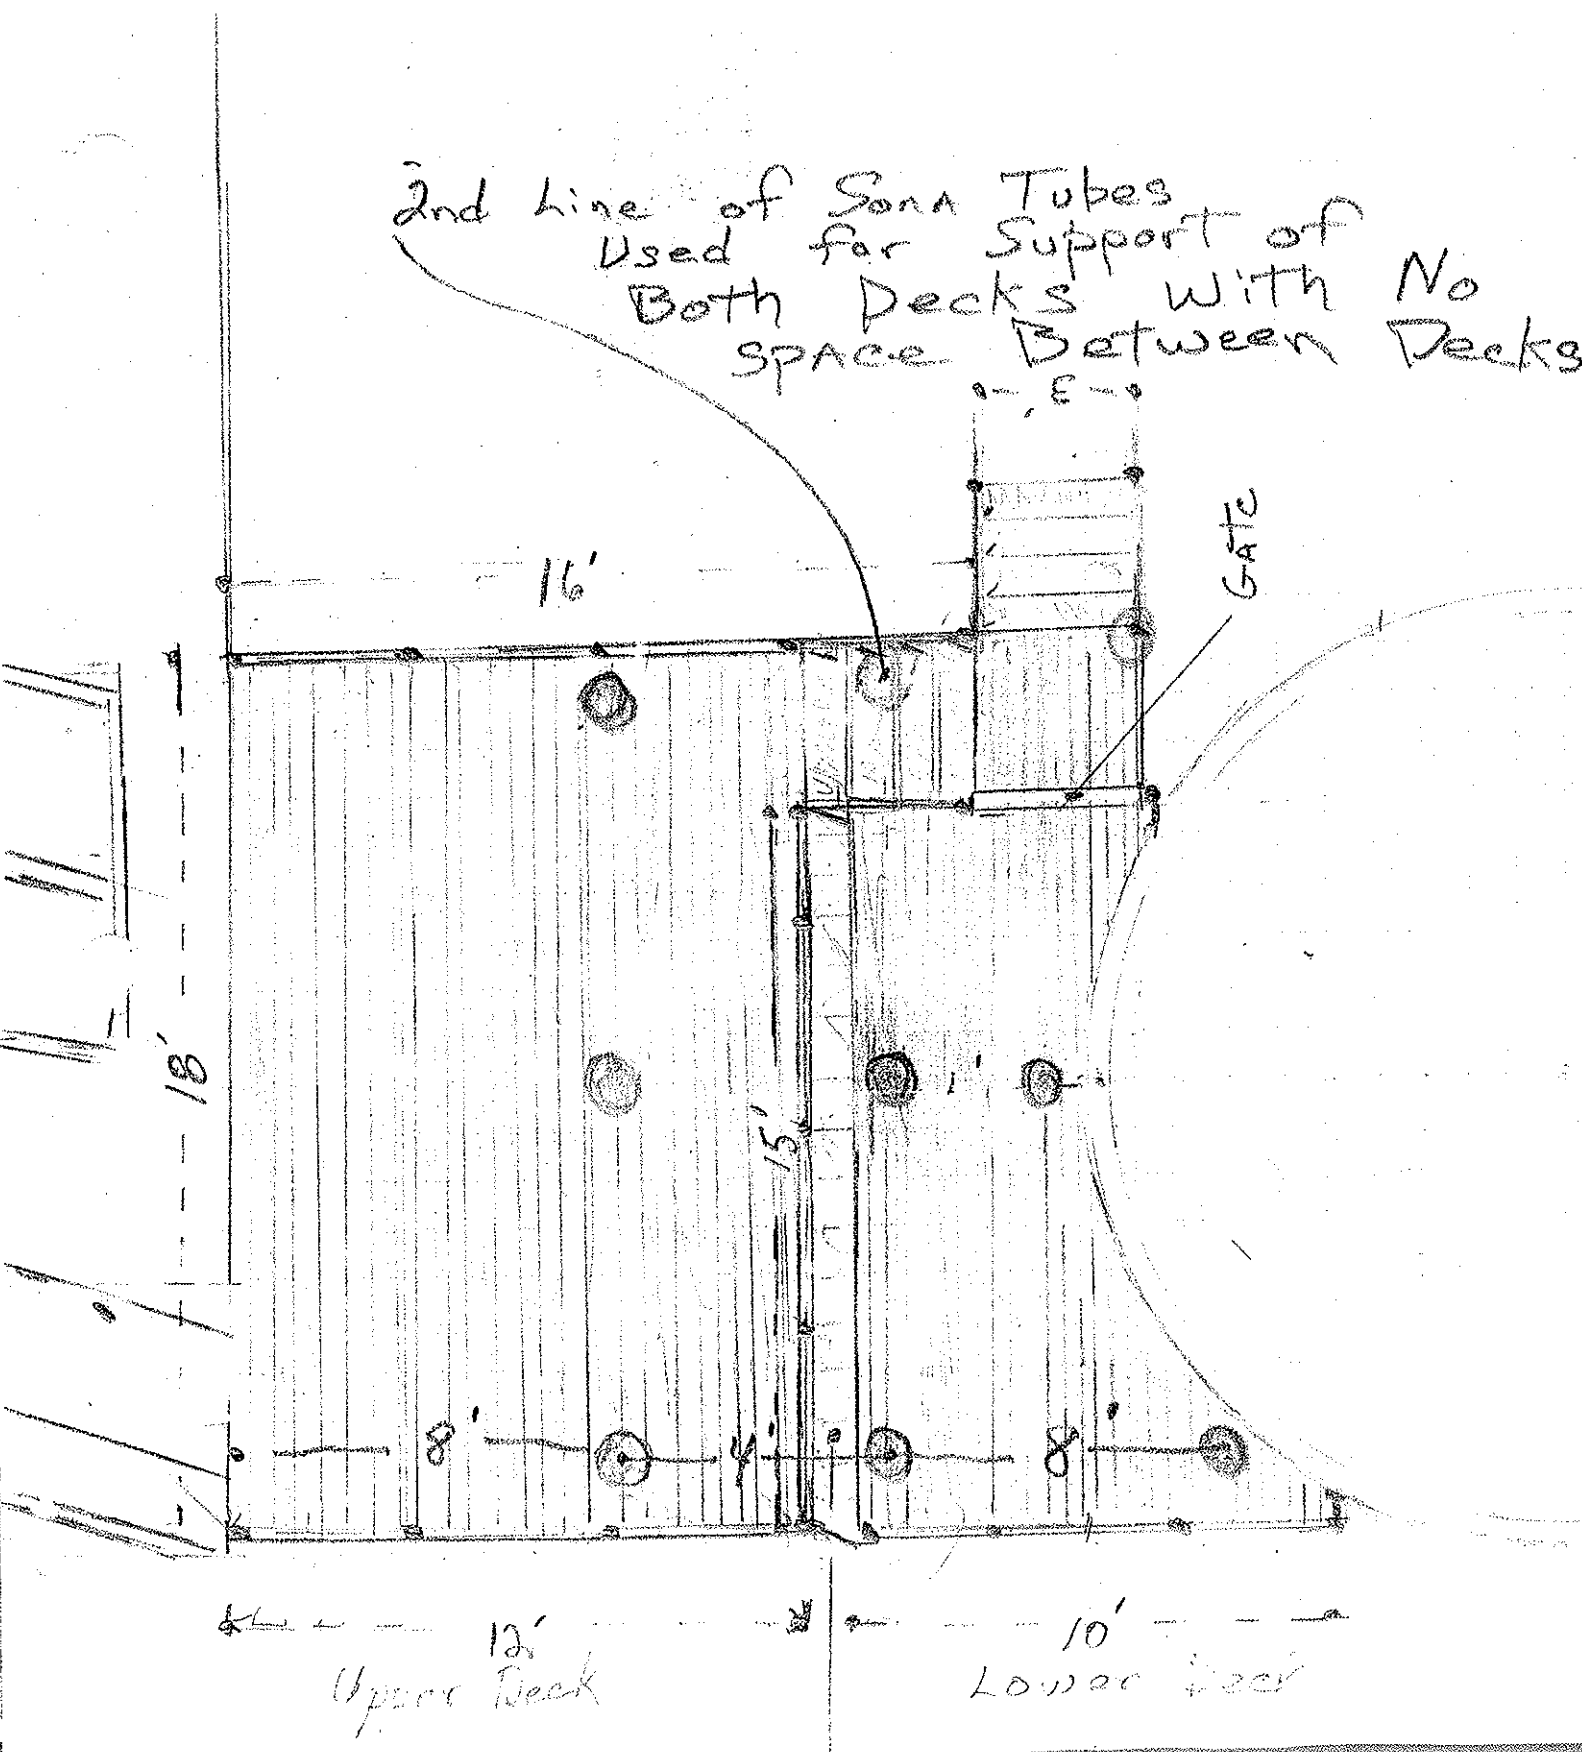 2nd Line of Sona Tubes
Used for Support of
Both Decks With No
Space Between Decks
3'
GATE
16'
18'
1'
15'
8'
4'
8'
12'
10'
Upper Deck
Lower Deck